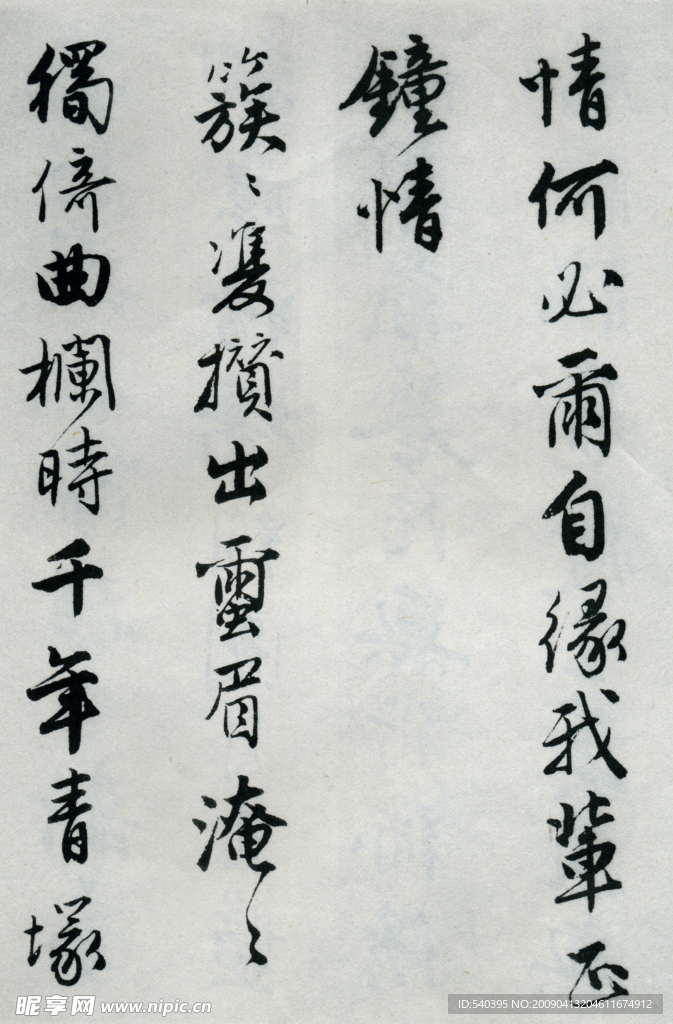 情何必爾自緣我輩正
鐘情
簇〻雙攢出蠒眉淹〻
獨倚曲欄時千年青塚
昵享网 www.nipic.cn
ID:540395 NO:20090413204611674912